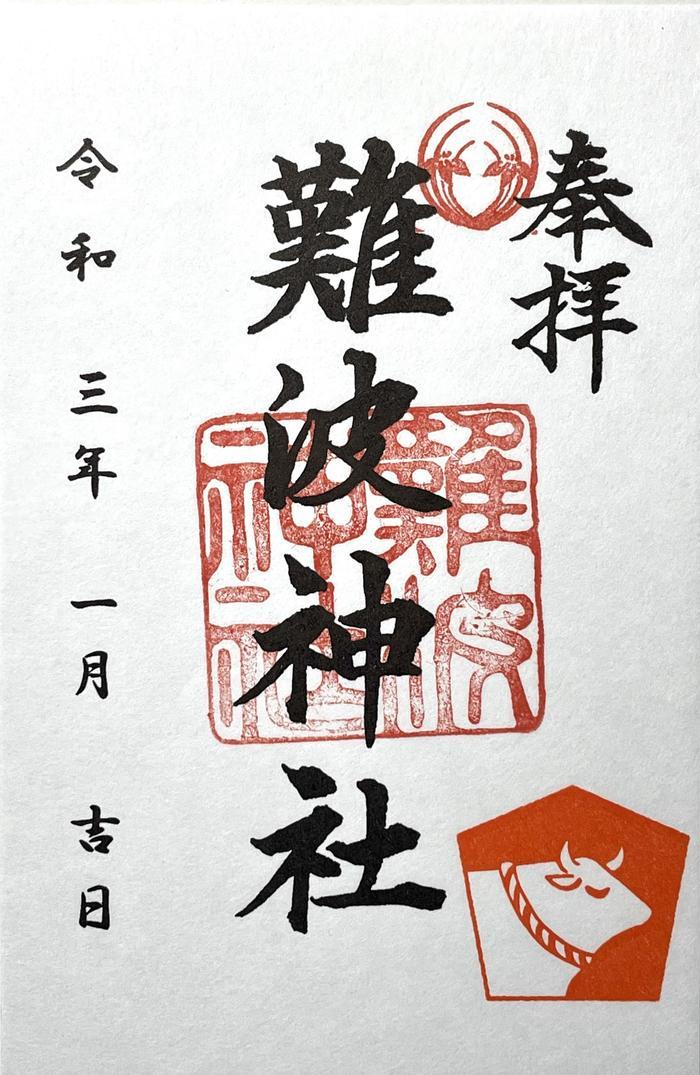 奉拝
難波神社
難波神社
令和三年一月吉日